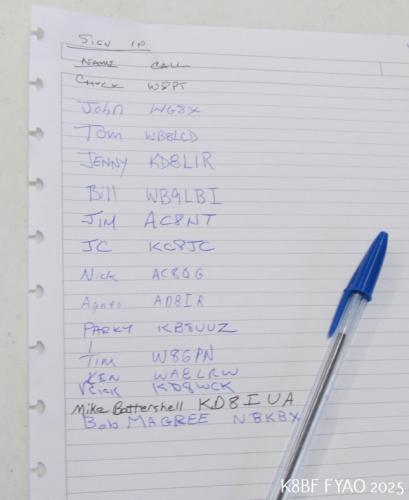 SIGN IN
NAME CALL
CHUCK W8PT
John WG8X
Tom WB8LCD
JENNY KD8LIR
Bill WB9LBI
JIM AC8NT
JC KC8JC
Nick AC8QG
Agnes AD8IR
PARKY KB8UUZ
TIM W8GPN
KEN WA8LRW
Rick KD8WCK
Mike Battershell KD8IUA
Bob MAGREE N8KBX
K8BF FYAO 2025